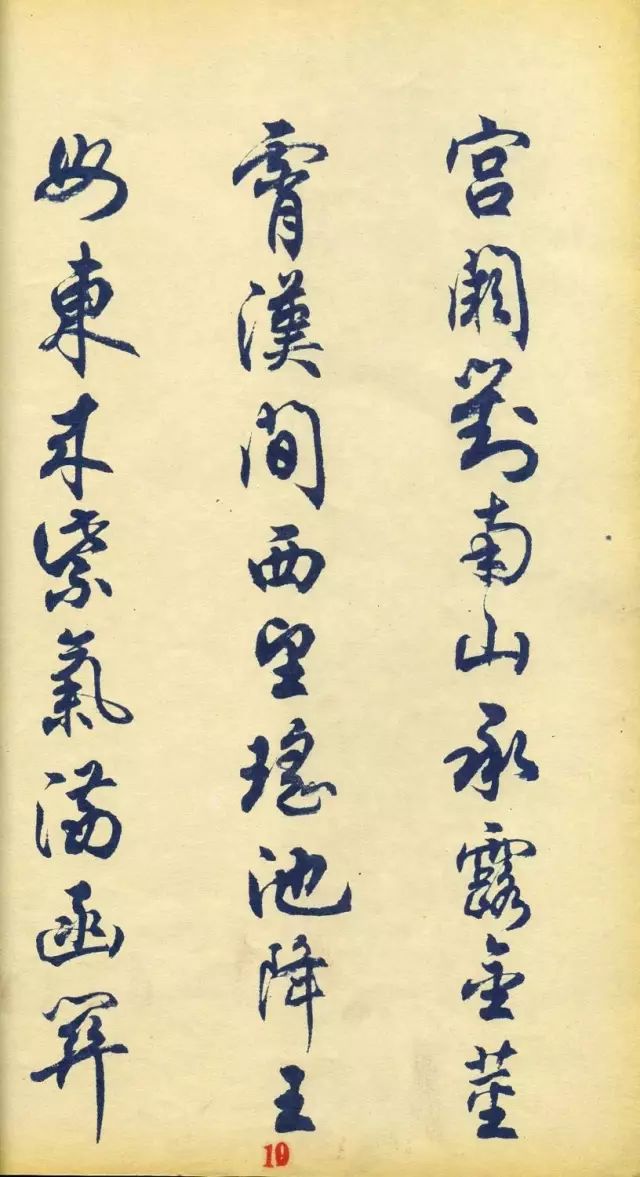 宫阙對南山承露金莖
霄漢間西望瑤池降王
母東来紫氣满函關
19